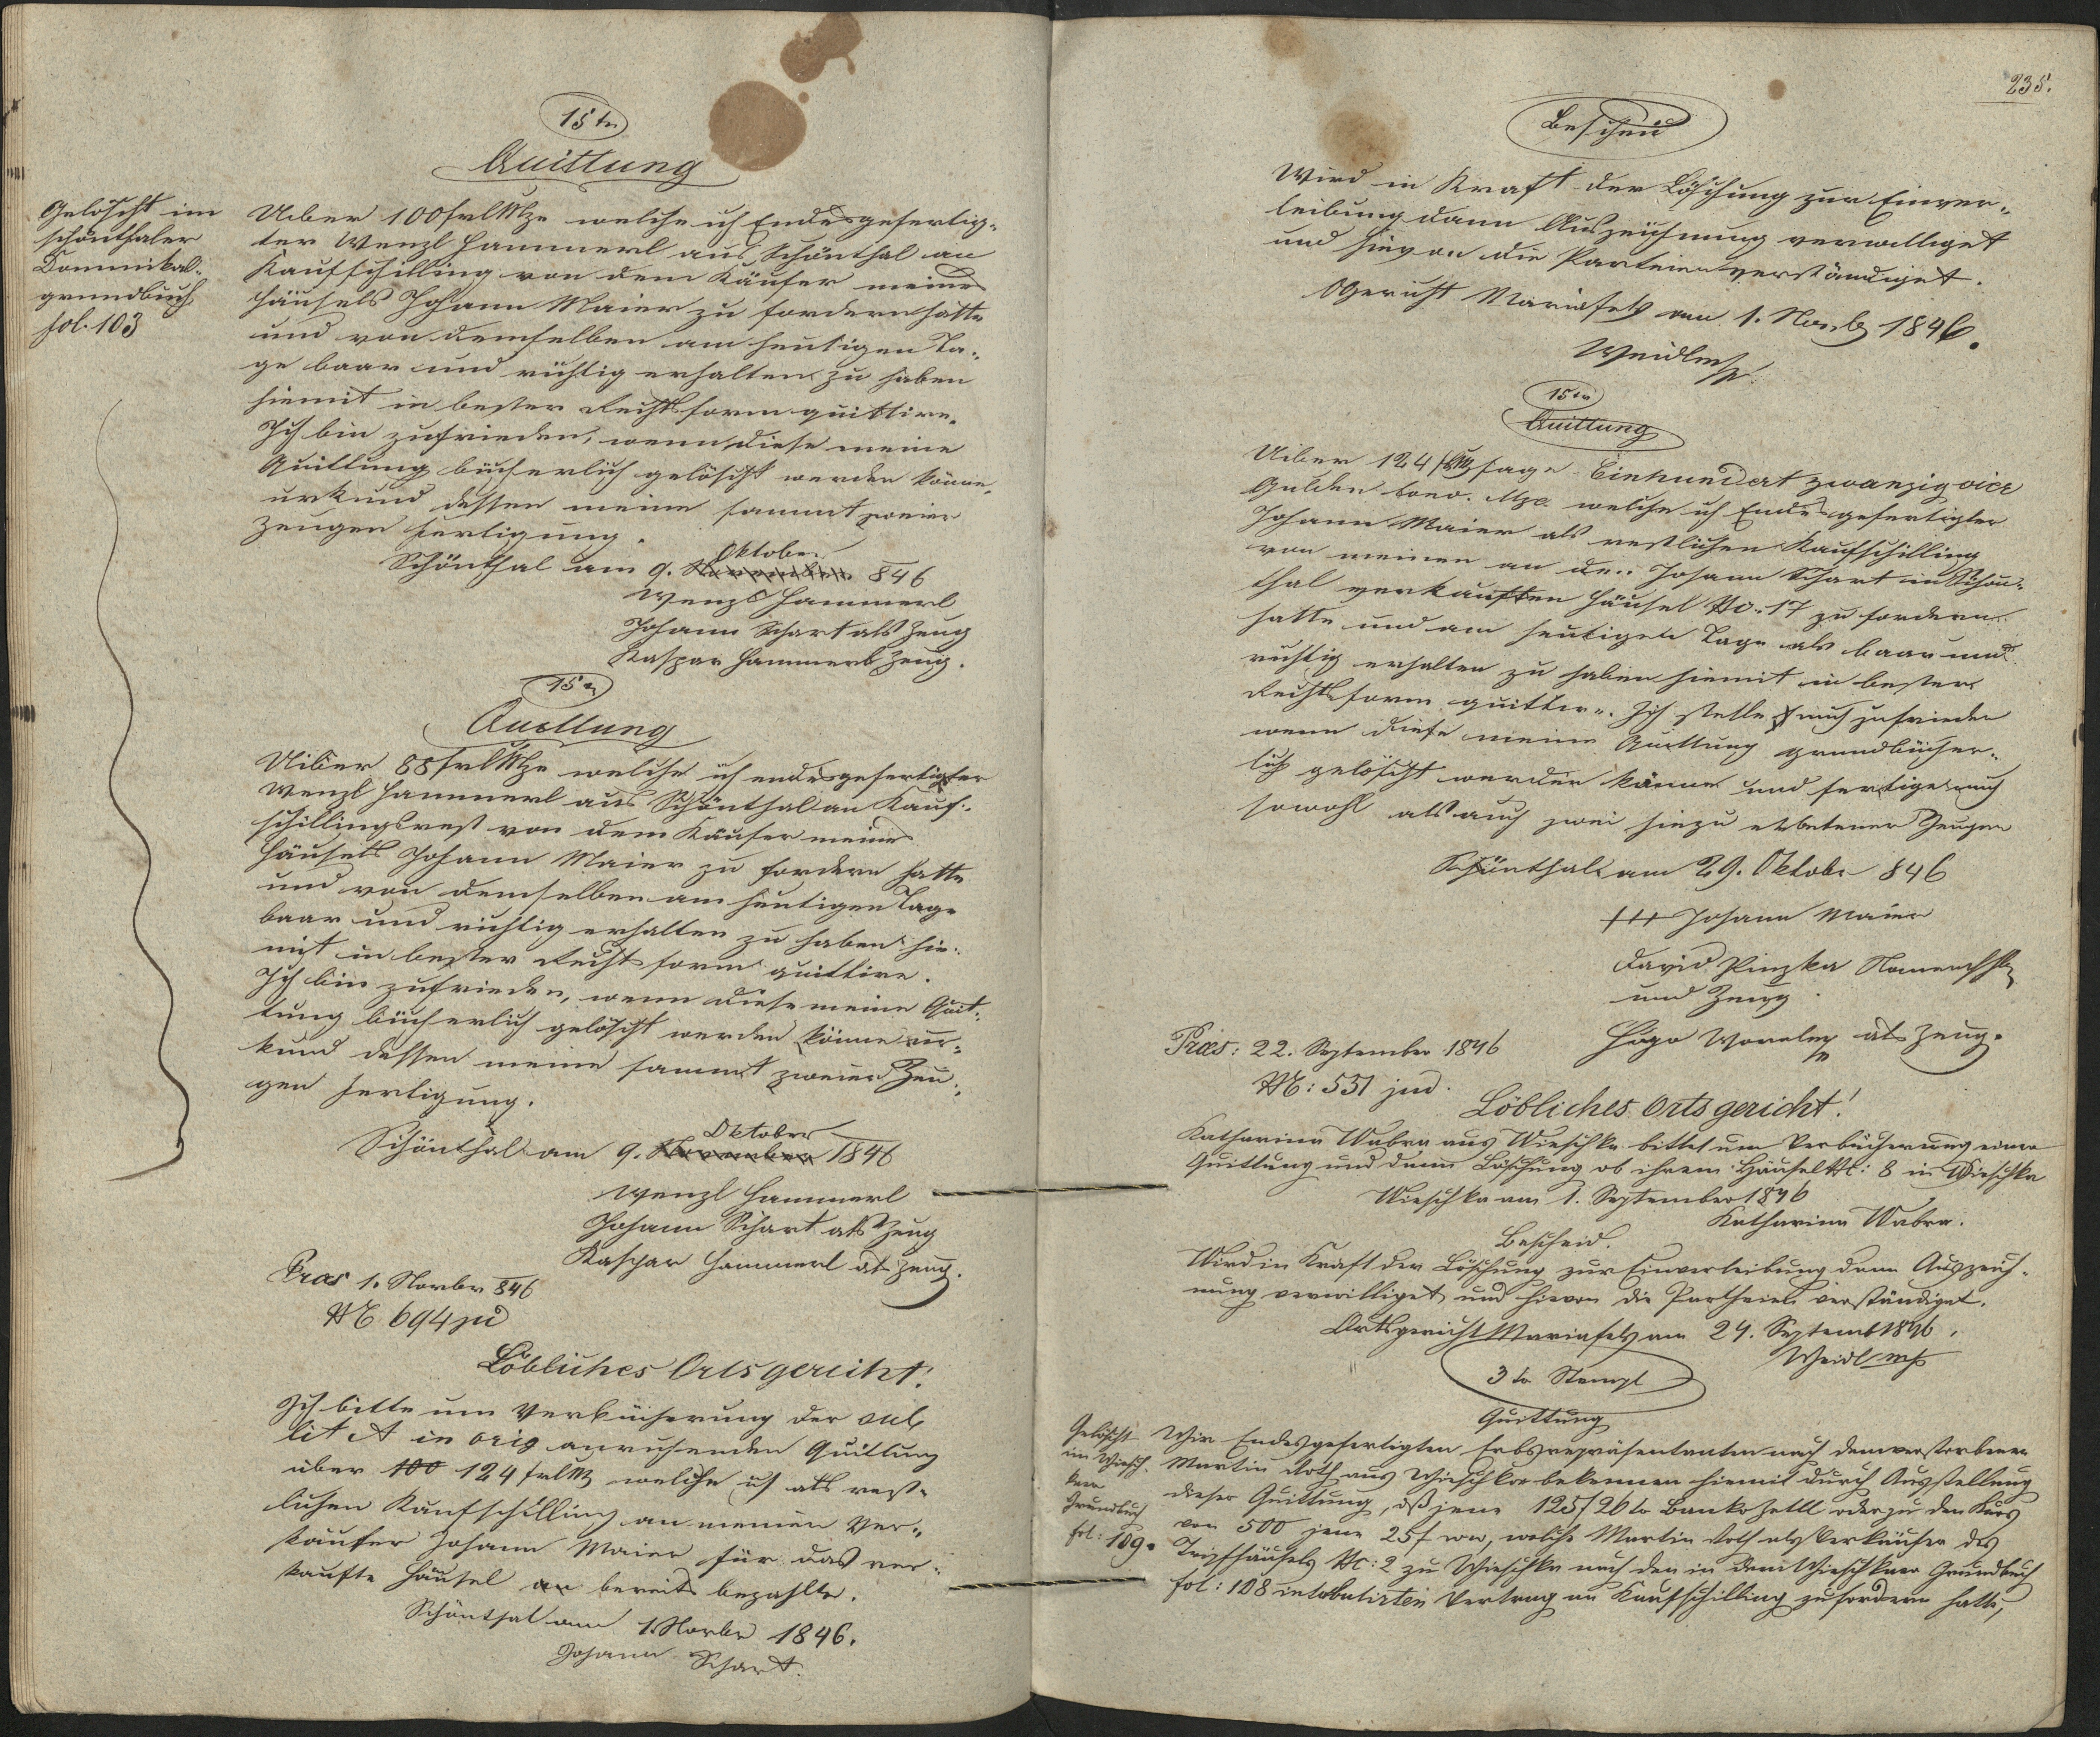 15 kr
Quittung
Gelöscht im
schönthaler
Dominikal-
grundbuch
fol. 103
Ueber 100 f CMze welche ich Endesgefertig-
ter Wenzl Hammerl aus Schönthal an
Kaufschilling von dem Käufer meines
Häusels Johann Maier zu fordern hatte
und von demselben am heutigen Ta-
ge baar und richtig erhalten zu haben
hiemit in bester Rechtsform quittire.
Ich bin zufrieden, wenn diese meine
Quittung bücherlich gelöscht werden könne,
urkund dessen meine sammt zweier
Zeugen fertigung.
Oktober
Schönthal am 9. November 846
Wenzl Hammerl
Johann Schart als Zeug
Kaspar Hammerl Zeug.
15 kr
Quittung
Uiber 88 f CMze welche ich endesgefertigter
Wenzl Hammerl aus Schönthal an Kauf-
schillingsrest von dem Käufer meines
Häusels Johann Maier zu fordern hatte
und von demselben am heutigen Tage
baar und richtig erhalten zu haben hie-
mit in bester Rechtsform quittire.
Ich bin zufrieden, wenn diese meine Quit-
tung bücherlich gelöscht werden könne ur-
kund dessen meine sammt zweier Zeu-
gen fertigung.
Oktober
Schönthal am 9. November 1846
Wenzl Hammerl
Johann Schart als Zeug
Kaspar Hammerl als Zeug.
Præs 1. Novbr 846
N 694 jud
Löbliches Ortsgericht!
Ich bitte um Verbücherung der sub
lit A in orig anruhenden Quittung
über 100 124 f CM welche ich als rest-
lichen Kaufschilling an meinen Ver-
käufer Johann Maier für das ver-
kaufte Häusel an bereits bezahlte.
Schönthal am 1. Novbr 1846.
Johann Schart.
235.
Bescheid
Wird in Kraft der Löschung zur Einver-
leibung dann Auszeichnung verwilliget
und hievon die Parteien verständiget.
OGericht Mariafels am 1. Novbr 1846.
Weidl mp
15 kr
Quittung
Uiber 124 f CM sage Einhundert zwanzig vier
Gulden Conv. Mze. welche ich Endesgefertigter
Johann Maier als restlichen Kaufschilling
von meinen an den Johann Schart in Schön-
thal verkauften Häusel No. 17 zu fordern
hatte und am heutigen Tage als baar und
richtig erhalten zu haben hiemit in bester
Rechtsform quittire. Ich stelle mich zufrieden
wenn diese meine Quittung grundbücher-
lich gelöscht werden könne und fertige mich
sowohl als auch zwei hiezu erbetener Zeugen
Schönthal am 29. Oktober 846
+++ Johann Maier
David Pinzka Namensf
und Zeug
Hugo als Zeug.
Præs: 22. September 1846
N: 551 jud.
Löbliches Ortsgericht!
Katharina Wabra aus Wieschka bittet um Verbücherung einer
Quittung und dann Löschung ob ihrem Häusel N: 8 in Wieschka
Wieschka am 1. September 1846
Katharina Wabra.
Bescheid.
Wird in Kraft der Löschung zur Einverleibung dann Auszeich-
nung verwilliget und hievon die Partheien verständiget.
Ortsgericht Mariafels am 24. Septemb 1846.
Weidl mp
3 kr Stempl
Quittung
Gelöscht
im Wiesch-
kaer
Grundbuch
fol: 109.
Wir Endesgefertigten Erbsrepräsentanten nach dem verstorbenen
Martin Roth aus Wieschka bekennen hiemit durch Ausstellung
dieser Quittung, daß jene 125 f 26 kr Bankozettl oder zu den Kurs
von 500 jene 25 f ww, welche Martin Roth als Verkäufer des
Häusels Nc: 2 zu Wieschka nach den in dem Wieschkaer Grundbuch
fol: 108 intabulirten Vertrag an Kaufschilling zufordern hatte,